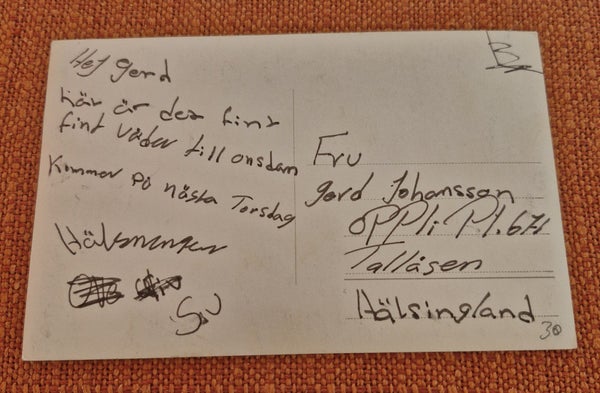 Hej Gerd
här är det fint
fint väder till onsdan
Kommer på nästa Torsdag
Hälsninger
Siv
Fru
Gerd Johansson
OPPli Pl. 671
Tallåsen
Hälsingland
30